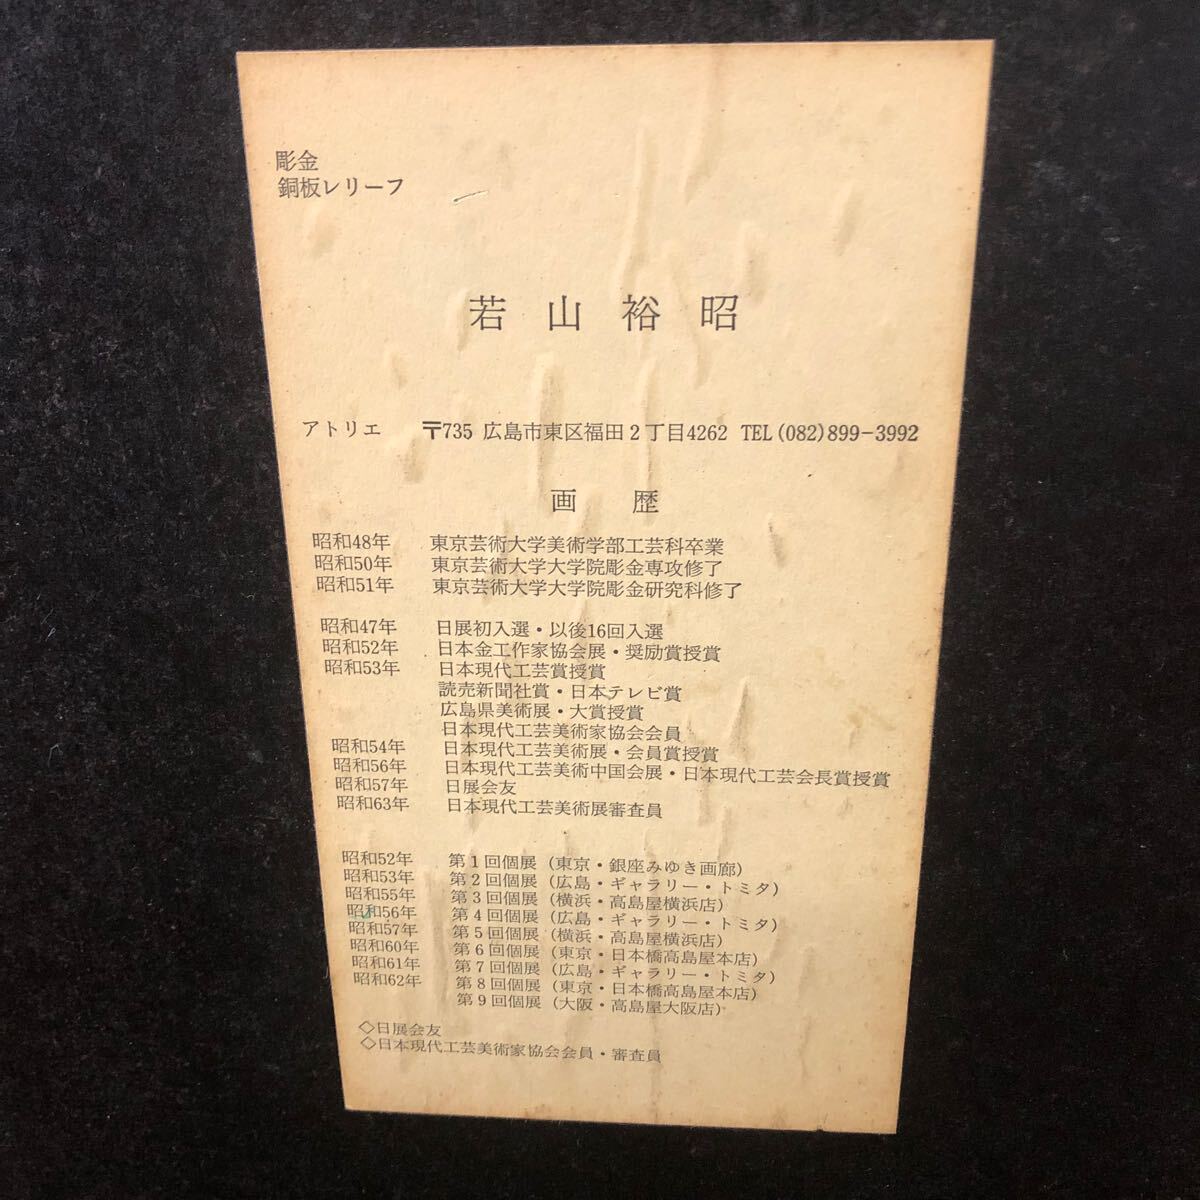 彫金
銅板レリーフ
若山裕昭
アトリエ 〒735 広島市東区福田2丁目4262 TEL(082)899-3992
画歴
昭和48年 東京芸術大学美術学部工芸科卒業
昭和50年 東京芸術大学大学院彫金専攻修了
昭和51年 東京芸術大学大学院彫金研究科修了
昭和47年 日展初入選・以後16回入選
昭和52年 日本金工作家協会展・奨励賞授賞
昭和53年 日本現代工芸賞授賞
読売新聞社賞・日本テレビ賞
広島県美術展・大賞授賞
日本現代工芸美術家協会会員
昭和54年 日本現代工芸美術展・会員賞授賞
昭和56年 日本現代工芸美術中国会展・日本現代工芸会長賞授賞
昭和57年 日展会友
昭和63年 日本現代工芸美術展審査員
昭和52年 第1回個展(東京・銀座みゆき画廊)
昭和53年 第2回個展(広島・ギャラリー・トミタ)
昭和55年 第3回個展(横浜・高島屋横浜店)
昭和56年 第4回個展(広島・ギャラリー・トミタ)
昭和57年 第5回個展(横浜・高島屋横浜店)
昭和60年 第6回個展(東京・日本橋高島屋本店)
昭和61年 第7回個展(広島・ギャラリー・トミタ)
昭和62年 第8回個展(東京・日本橋高島屋本店)
第9回個展(大阪・高島屋大阪店)
◇日展会友
◇日本現代工芸美術家協会会員・審査員